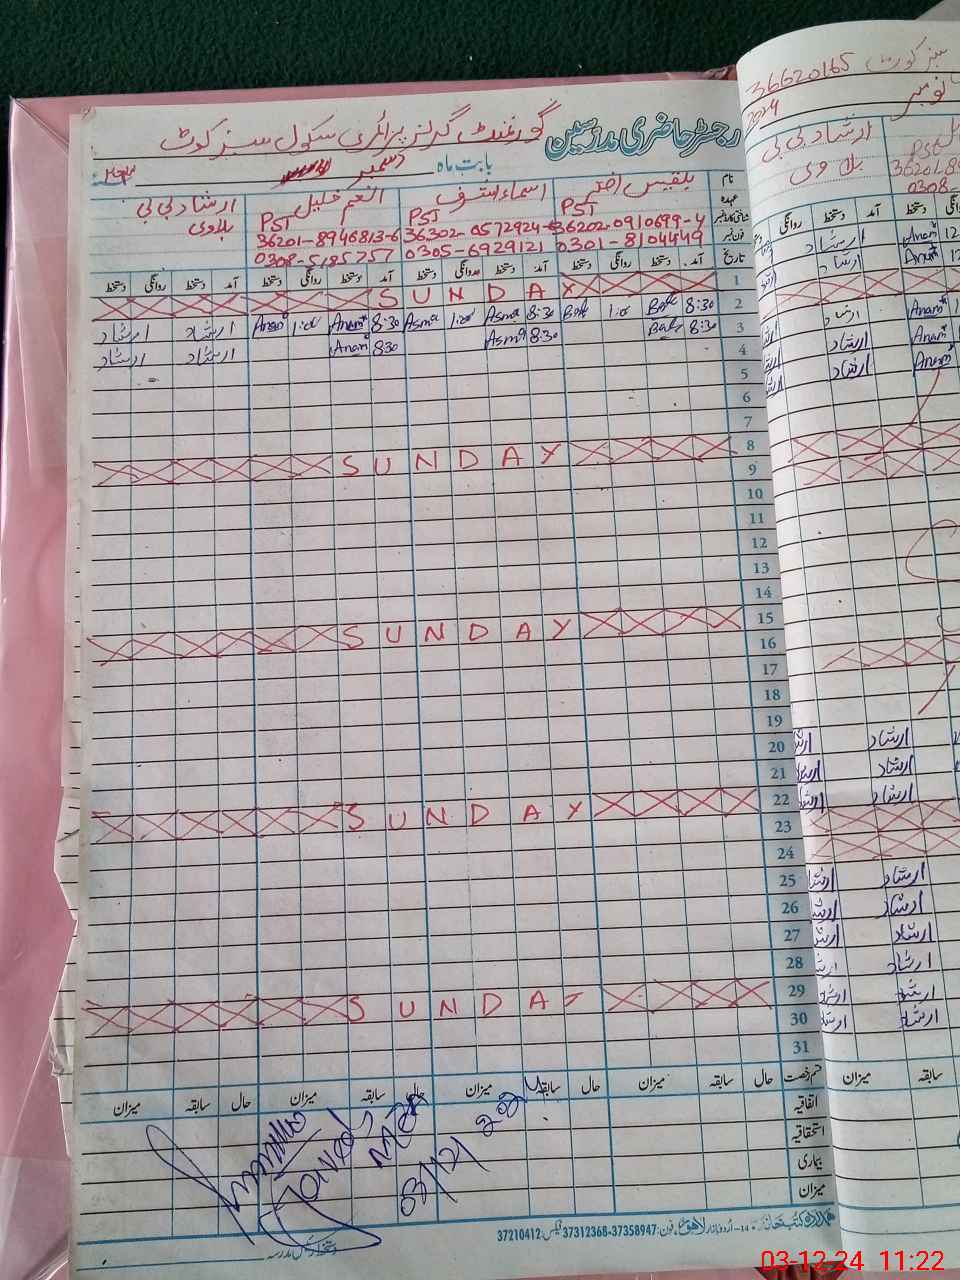 رجسٹر حاضری مدرسین گورنمنٹ گرلز پرائمری سکول سبز کوٹ
بابت ماہ دسمبر
نام بلقیس اختر اسماء اشرف انعم خلیل ارشاد بی بی
عہدہ PST PST PST بلاوی
شناختی کارڈ نمبر 36202-0910699-4 36302-0572924- 36201-8946813-6
فون نمبر 0301-8104449 0305-6929121 0308-5185757
تاریخ آمد دستخط روانگی دستخط آمد دستخط روانگی دستخط آمد دستخط روانگی دستخط آمد دستخط روانگی دستخط
1 SUNDAY
2 8:30 1:00 8:30 Asma 1:00 Asma 8:30 Anam 1:00 Anam ارشاد ارشاد
3 8:30 8:30 Asma 8:30 Anam ارشاد ارشاد
4
5
6
7
8 SUNDAY
9
10
11
12
13
14
15 SUNDAY
16
17
18
19
20
21
22 SUNDAY
23
24
25
26
27
28
29 SUNDA
30
31
قسم رخصت حال سابقہ میزان حال سابقہ میزان حال سابقہ میزان حال سابقہ میزان
اتفاقیہ
استحقاقیہ
بیماری
میزان
03/12/2024
اردو بازار لاہور فون: 37358947-37312368 فیکس: 37210412
دستخط رئیس مدرسہ
36620165 سبز کوٹ
2024 نومبر
ارشاد بی بی
بلاوی
PST
36201-89
0308-
روانگی دستخط آمد دستخط
ارشاد Anam 12
ارشاد Anam 12
ارشاد Anam
ارشاد Anam
ارشاد Anam
ارشاد
ارشاد
ارشاد
ارشاد
ارشاد
ارشاد
ارشاد
ارشاد
ارشاد
میزان سابقہ
03-12-24 11:22